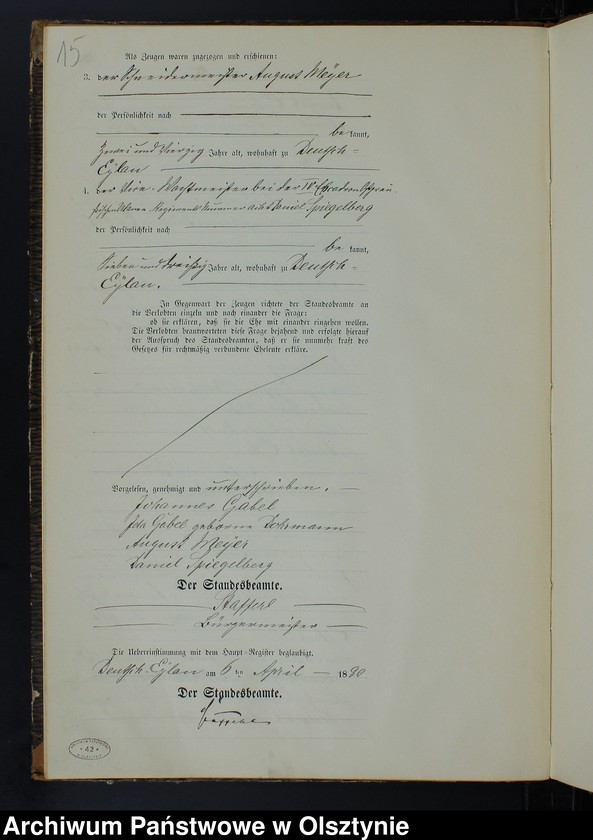 15
Als Zeugen waren zugezogen und erschienen:
3. der Schneidermeister August Meyer
der Persönlichkeit nach
be kannt,
zwei und vierzig Jahre alt, wohnhaft zu Deutsch-
Eylau
4. der Vice-Wachtmeister bei der IV. Escadron Ostpreu-
ßischen Regiments Nummer acht Daniel Spiegelberg
der Persönlichkeit nach
be kannt,
sieben und dreißig Jahre alt, wohnhaft zu Deutsch-
Eylau.
In Gegenwart der Zeugen richtete der Standesbeamte an
die Verlobten einzeln und nach einander die Frage:
ob sie erklären, daß sie die Ehe mit einander eingehen wollen.
Die Verlobten beantworteten diese Frage bejahend und erfolgte hierauf
der Ausspruch des Standesbeamten, daß er sie nunmehr kraft des
Gesetzes für rechtmäßig verbundene Eheleute erkläre.
Vorgelesen, genehmigt und unterschrieben.
Johannes Gäbel
Gäbel geborene
August Meyer
Daniel Spiegelberg
Der Standesbeamte.
Staffehl
Bürgermeister
Die Uebereinstimmung mit dem Haupt-Register beglaubigt.
Deutsch-Eylau am 6ten April 1890
Der Standesbeamte.
42
Archiwum Państwowe w Olsztynie